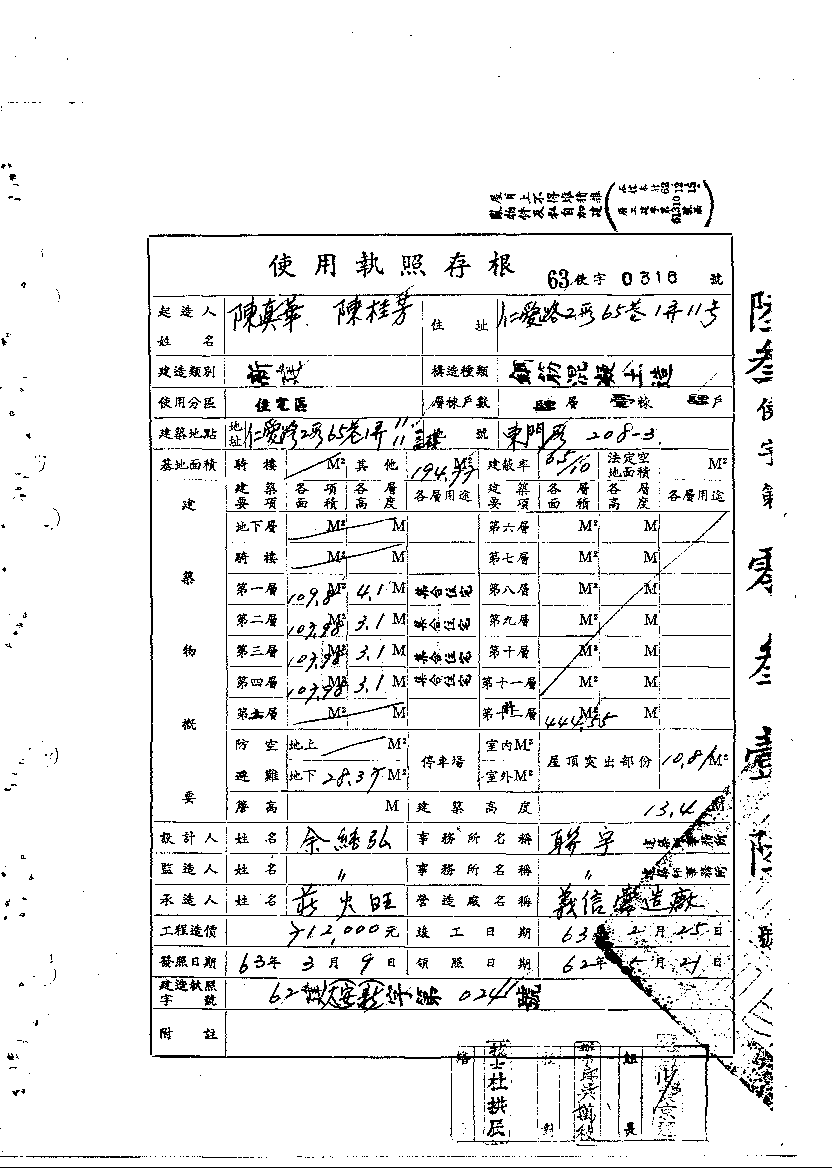 使用執照存根
63使字0316號
起造人姓名 陳真華 陳桂芳 住址 仁愛路2段65巷1弄11号
建造類別 新建 構造種類 鋼筋混凝土造
使用分區 住宅區 層棟戶數 層 棟 戶
建築地點 地址 仁愛路2段65巷1弄11 號 東門段 208-3
基地面積 騎樓 M² 其他 194.77 M² 建蔽率 65/10 法定空地面積 M²
建築物概要
建築要項 各項面積 各層高度 各層用途 建築要項 各層面積 各層高度 各層用途
地下層 M² M 第六層 M² M
騎樓 M² M 第七層 M² M
第一層 109.8 M² 4.1 M 集合住宅 第八層 M² M
第二層 103.98 M² 3.1 M 集合住宅 第九層 M² M
第三層 103.98 M² 3.1 M 集合住宅 第十層 M² M
第四層 103.98 M² 3.1 M 集合住宅 第十一層 M² M
第五層 M² M 第十二層 444.55 M² M
防空避難 地上 M² 停車場 室內M² 屋頂突出部份 10.81 M²
地下 28.37 M² 室外M²
簷高 M 建築高度 13.4 M
設計人 姓名 余繼弘 事務所名稱 聯宇
監造人 姓名 〃 事務所名稱 〃
承造人 姓名 莊火旺 營造廠名稱 義信營造廠
工程造價 712,000元 竣工日期 63年2月25日
發照日期 63年3月9日 領照日期 62年5月21日
建造執照字號 62 字第 0241 號
附註
陸叁使字第零叁壹陸號
技士杜拱辰
校對
組長